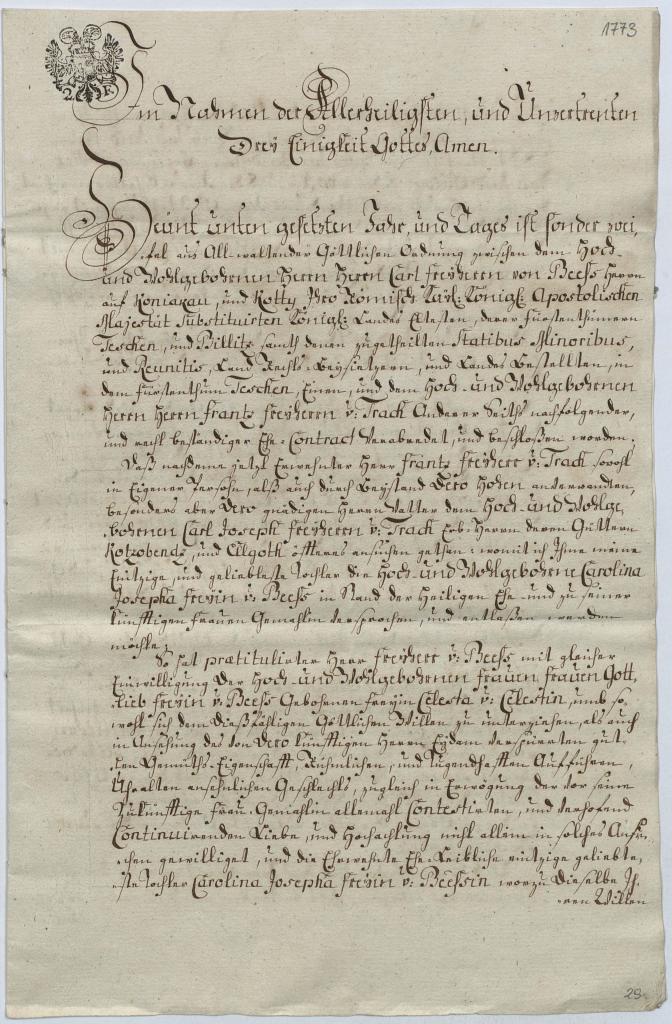 1773
2 K
Im Nahmen der Allerheiligsten, und Unzertrenten
Drey Einigkeit Gottes, Amen.
Heünt unten gesetzten Jahr, und Tages ist sonder zwei„
„fel aus All-waltender Göttlichen Ordnung zwischen dem Hoch-
und Wohlgebohrnen Herrn Herrn Carl freyherrn von Beess Herrn
auf Koniakau, und Kotty Ihro Römisch Kayl: Königl: Apostolischen
Majestät Substituirten Königl: Landes Eltesten, derer fürstenthümern
Teschen, und Billitz sambt denen zugetheilten Statibus Minoribus,
und Reunitis, Land Rechts-Beysietzern, und Landes Bestellten, in
dem fürstenthum Teschen, Einen, und dem Hoch- und Wohlgebohrnen
Herrn Herrn frantz freyherrn v: Trach Anderer Seiths nachfolgender,
und recht beständiger Ehe-Contract Verabredet, und beschloßen worden.
Daß nachdeme jetzt Erwehnter Herr frantz freyherr v: Trach sowohl
in Eigener Persohn, alß auch durch Beystand Dero Hohen anverwandten,
besonders aber Dero gnädigen Herrn Vatter dem Hoch-und Wohlge„
„bohrnen Carl Joseph freyherrn v: Trach Erb-Herrn deren Güttern
Kotzobendz, und Ellgoth öffteres ansuchen gethan: womit ich Ihme meine
Eintzige, und geliebteste tochter die Hoch-und Wohlgebohrne Carolina
Josepha freyin v: Beess in Stand der Heiligen Ehe-und zu seiner
künfftigen frauen Gemahlin Versprochen, und entlaßen werden
möchte;
So hat prætitulirter Herr freyherr v: Beess mit gleicher
Einwilligung der Hoch-und Wohlgebohrnen frauen frauen Gott„
„lieb freyin v: Beess Gebohrnen freyin Celesta v: Celestin, umb so„
wohl sich dem Göttlichen Willen zu unterziehen, als auch
in Ansehung des Von Dero künfftigen Herrn Eydam Verspüerten gut„
„ten Gemüths-Eigenschafft, Rühmlichen, und Tugendhafften Aufführen,
Uhralten ansehnlichen Geschlechts, zugleich in Erwögung der vor seine
Zukünfftige frau Gemahlin allemahl Contestirten, und Verhofend
Continuirenden Liebe, und Hochachtung nicht allein in solches Ansu„
„chen gewilliget, und die Ehrwehnte Ehe-Leibliche eintzige geliebte„
„ste tochter Carolina Josepha freyin v: Beessin worzu Dieselbe Ih„
„ren Willen
29